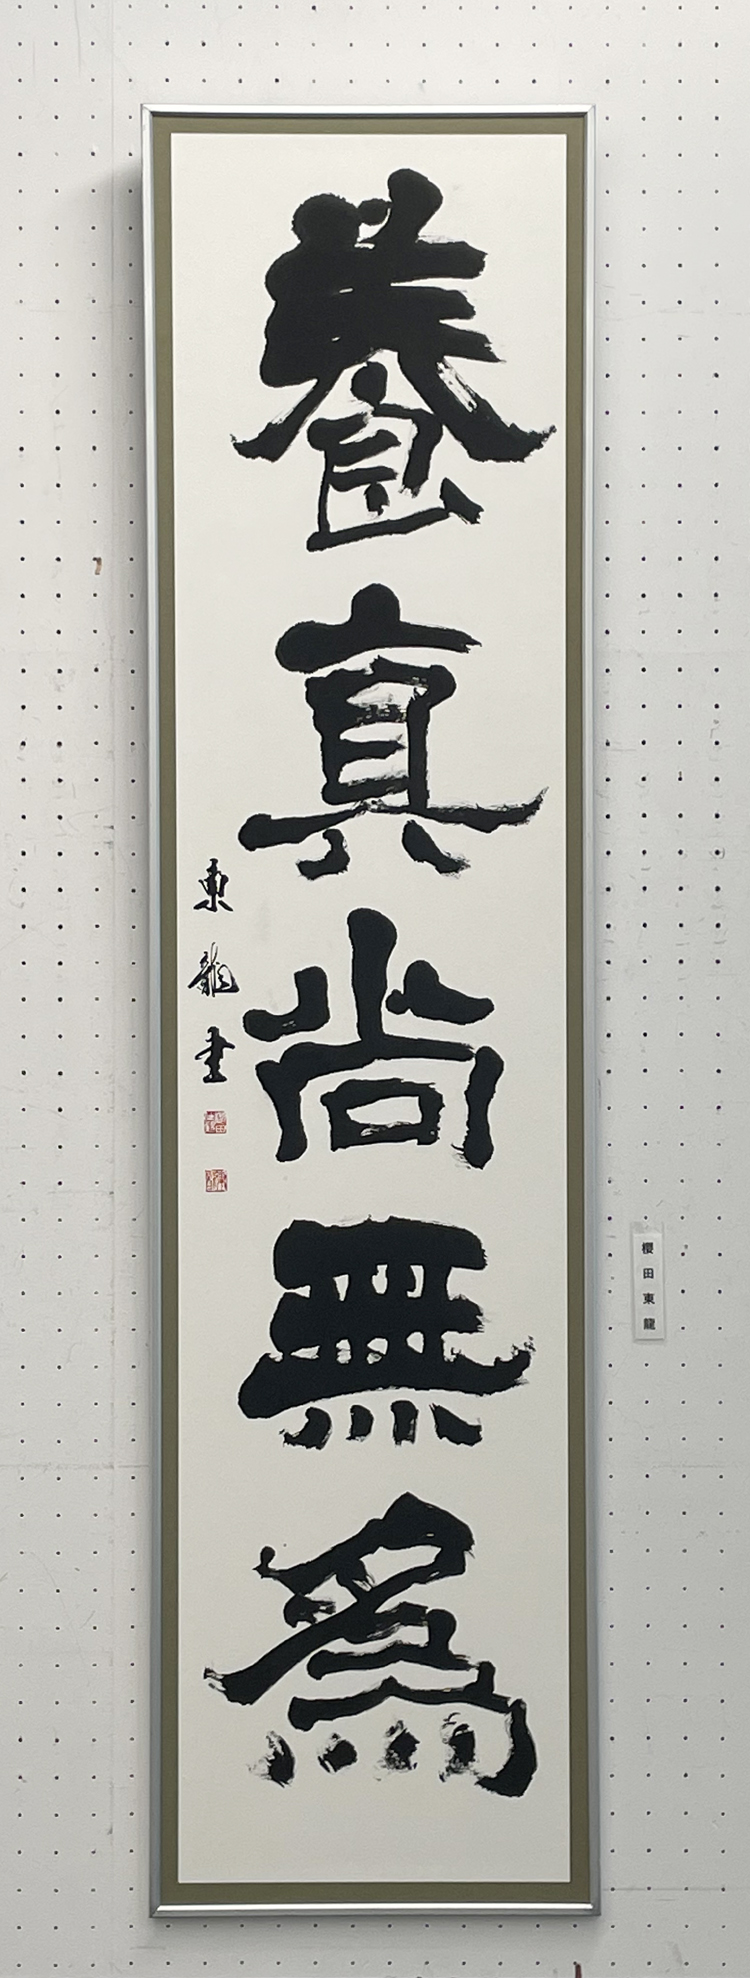 養真尚無為
東龍書
櫻田東龍